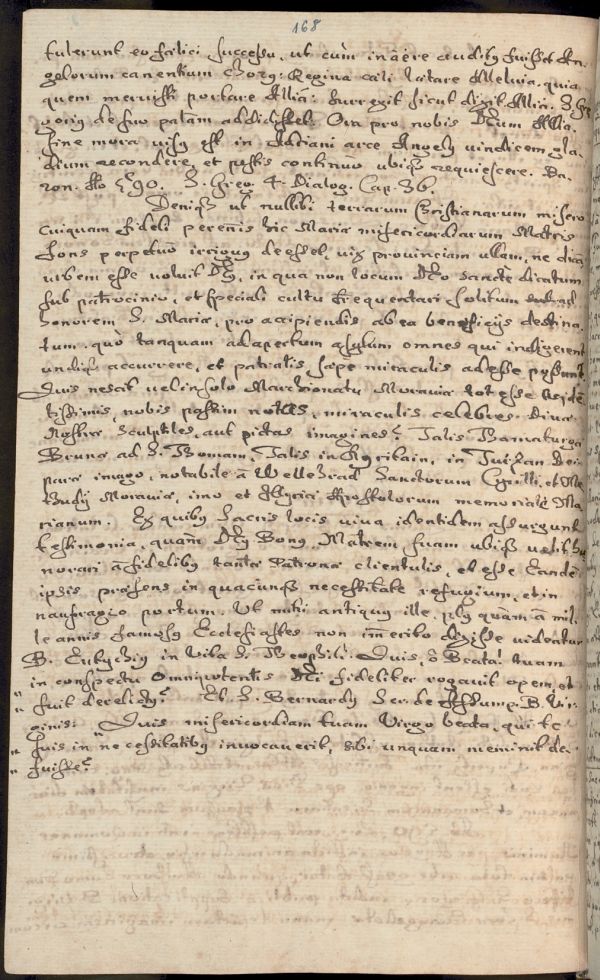 168
tulerunt eo fælici successu, ut cùm in aëre auditus fuisset An-
gelorum canentium Chorus: Regina cæli lætare Alleluia. quia
quem meruisti portare Allia: surrexit sicut dixit Allia. S. Gre
gorius de suo palam addidisset: Ora pro nobis Deum Allia.
sine mora visus est in Adriani arce Angelus vindicem gla-
dium recondere, et pestis continuo ubique requiescere. Ba-
ron. A͠o 590. S. Greg. 4. Dialog. Cap. 36.
Denique ut nullibi terrarum Christianarum misero
cuiquam fideli perennis hic Maria misericordiarum Matris
fons perpetuò irriguus deesset, vix provinciam ullam, ne dicam
urbem esse voluit Deus, in qua non locum Deo sanctè dicatum
sub patrocinio, et speciali cultu frequentari solitum ad
honorem S. Mariæ, pro accipiendis ab ea beneficijs destina-
tum. quò tanquam ad apertum asylum omnes qui indigerent
undique accurrere, et patratis sæpe miraculis adesse possunt.
Quis nescit vel in solo Marchionatu Moraviæ tot esse
tissimis, nobis passim notis, miraculis celebres Divæ
Nostræ sculptiles, aut pictas imagines? Talis Thaumaturga
Brunæ ad S. Thomam, Talis in Kyritain, in Turžan Dei-
paræ imago, notabile à Wellehrad Sanctorum Cyrilli, et Me
thudij Moraviæ, imo et Illyrici Apostolorum memoriale Ma
rianum. Ex quibus sacris locis viva identidem assurgunt
testimonia, quàm Deus Bonus Matrem suam ubique velit ho
norari à fidelibus tantæ Patronæ clientulis, et esse Eandem
ipsis præsens in quacunque necessitate refugium, et in
naufragio portum. Ut mihi antiquus ille, plus quàm à mil-
le annis famosus Ecclesiastes non immerito dixisse videatur
B. Eutychius in Vita S. Theophili: Quis, ô Beata! tuam
in conspectu Omnipotentis Dei fideliter rogavit opem, et
" fuit derelictus? Et S. Bernardus Ser. de Assump. B. Vir-
ginis: Quis misericordiam tuam Virgo beata, qui te
" suis in necessitatibus invocaverit, sibi unquam meminit de-
" fuisse?